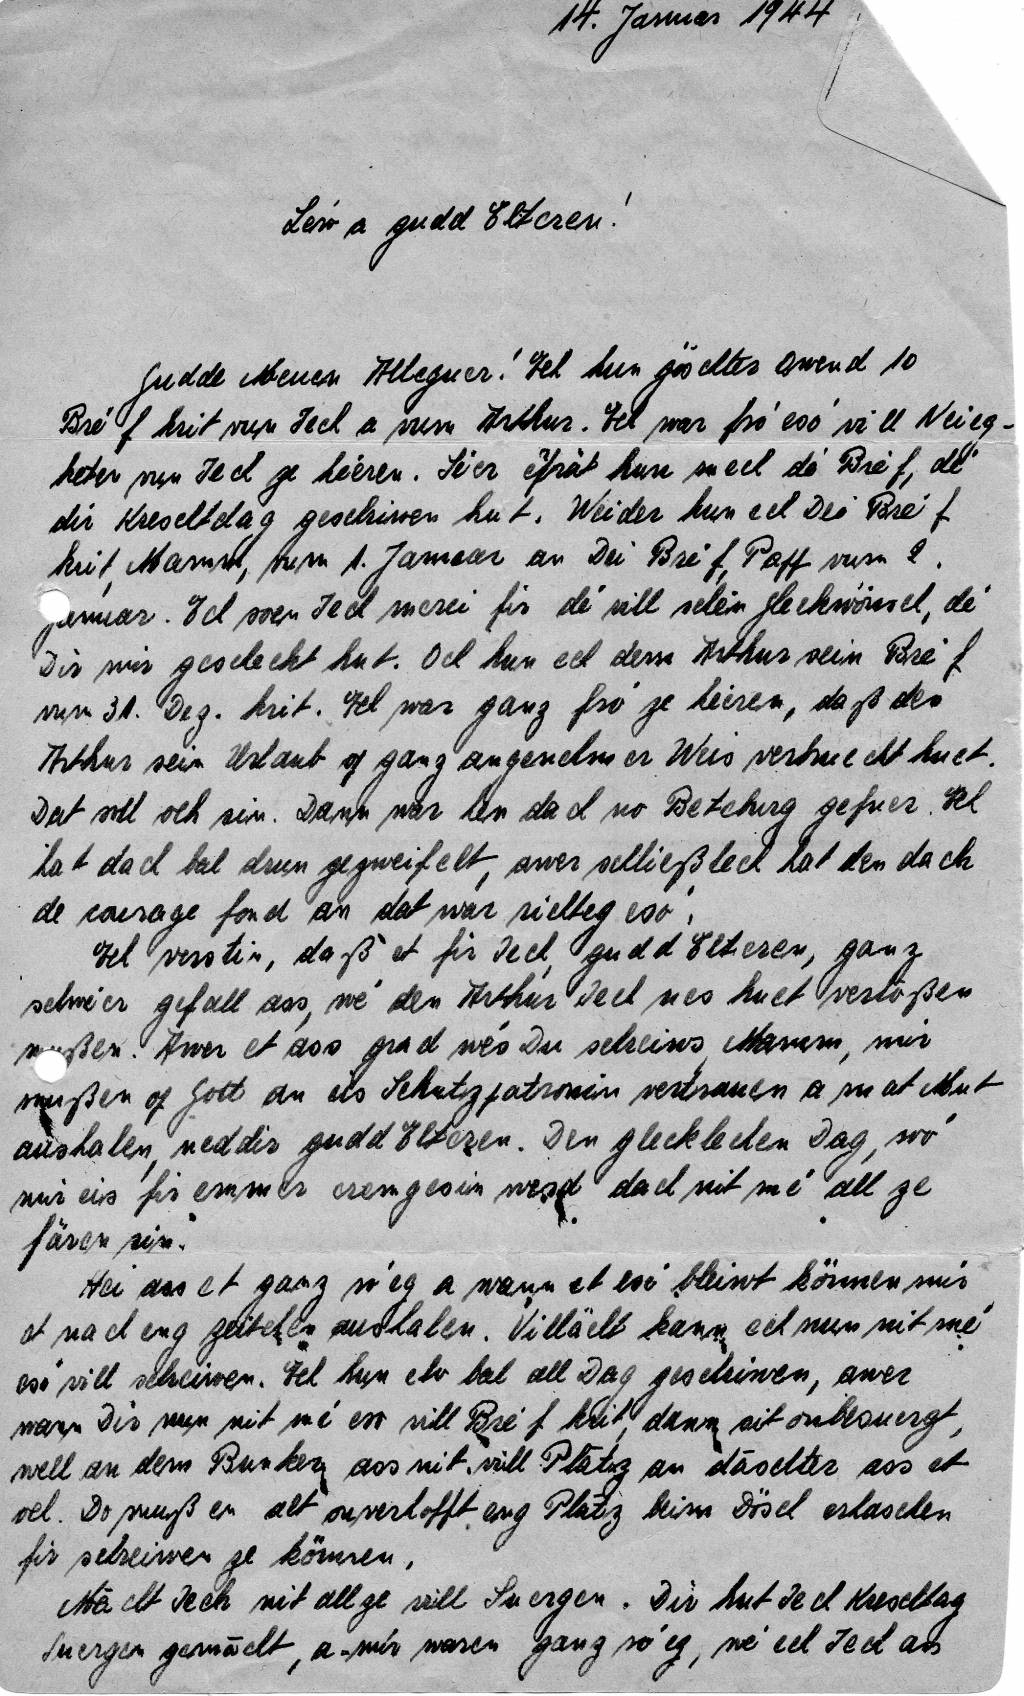 14. Januar 1944
Léiw a gudd Elteren!
Gudde Meuen Alleguer! Ech hun göschter Owend 10
Bréf krit vum Iech a vum Arthur. Ech war fró esó vill Neieg-
keten vun Iech ze héieren. Séier erfrät hun mech dé Bréf, dé
dir Kreschtdag geschriwen hut. Weider hun ech Dei Bréf
krit, Mamm, vum 1. Januar an Dei Bréf, Paff vum 2.
Januar. Ech soen Iech merci fir dé vill schéin Gleckwönsch, dé
Dir mir gescheckt hut. Och hun ech dem Arthur sein Bréf
vum 31. Dez. krit. Ech war ganz fró ze héieren, daß den
Arthur sein Urlaub op ganz angenehmer Weis verbruecht huet.
Dat soll och sin. Dann war hen dach no Bezeburg gefuer. Ech
hat dach bal drun gezweifelt, awer schließlech hat den dach
de courage fond an dat war richteg esó.
Ech verstin, daß et fir Iech, gudd Elteren, ganz
schwéier gefall ass, wé den Arthur Iech nes huet verloßen
mußen. Awer et ass grad wés Du schreiws, Mamm, mir
mußen op Gott an eis Schutzpatronin vertrauen a mat Mut
aushalen, ned dir gudd Elteren. Den glecklechen Dag, wó
mir eis fir emmer eremgesin werd dach nit mé all ze
fären sin.
Hei ass et ganz róeg a wann et esó bleiwt können mir
et nach eng zeitchen aushalen. Villächt kann ech nun nit mé
esó vill schreiwen. Ech hun elo bal all Dag geschriwen, awer
wann Dir nun nit mé eso vill Bréf krit, dann sit onbesuergt,
well an dem Bunker ass nit vill Plätz an däschter ass et
och. Do muß en alt onverhofft eng Plätz beim Dösch erhaschen
fir schreiwen ze können.
Mächt Iech nit all ze vill Suergen. Dir hut Iech Kreschtag
Suergen gemächt, a mir waren ganz róeg, wé ech Iech as